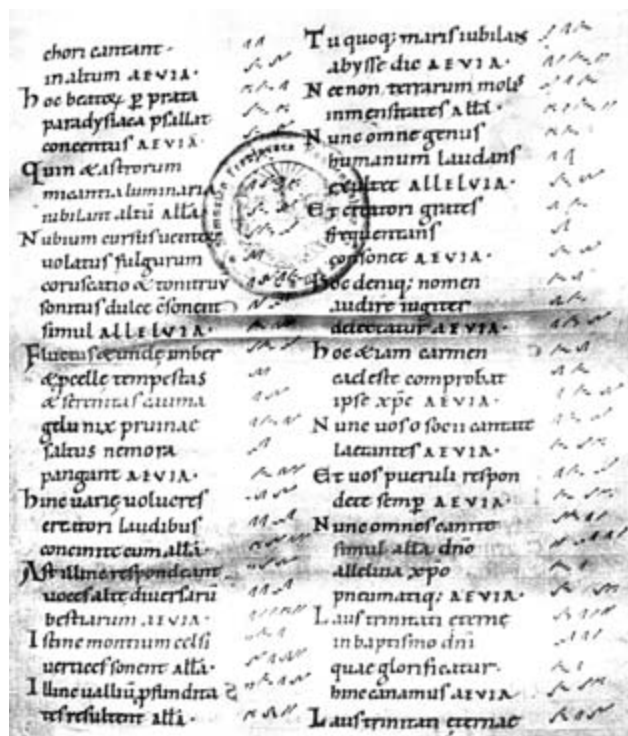 chori cantant·
in altum AEVIA·
hoc beatoꝝ ꝑ prata
paradysiaca psallat
concentus AEVIA·
Quin & astrorum
micantia luminaria
iubilant altū all̄a·
Nubium cursus uentoꝝ
uolatus fulgurum
coruscatio & tonitruū
sonitus dulce c̄sonent
simul ALLELVIA·
Fluctus & undę imber
& ꝓcellę tempestas
& serenitas cauma
gelu nix pruinae
saltus nemora
pangant AEVIA·
hinc uarię uolucres
creatori laudibus
concinite cum all̄a·
Ast illinc respondeant
uoces altę diuersarū
bestiarum AEVIA·
Istinc montium celsi
uertices sonent all̄a·
Illinc ualliū ꝓfundita
tes resultent all̄a·
Tu quoq; maris iubilans
abysse dic AEVIA·
Necnon terrarum molis
inmensitates all̄a·
Nunc om̄e genus
humanum laudans
exultet ALLELVIA·
Et creatori grates
frequentans
consonet AEVIA·
hoc deniq; nomen
audire iugiter
delectatur AEVIA·
hoc &iam carmen
caeleste comprobat
ipse xp̄c AEVIA·
Nunc uos o socii cantate
laetantes AEVIA·
Et uos pueruli respon
dete semꝑ AEVIA·
Nunc omnes canite
simul all̄a dn̄o
alleluia xp̄o
pneumatiq; AEVIA·
Laus trinitati eternę
in baptismo dn̄i
quae glorificatur·
hinc canamus AEVIA·
Laus trinitati ęternae